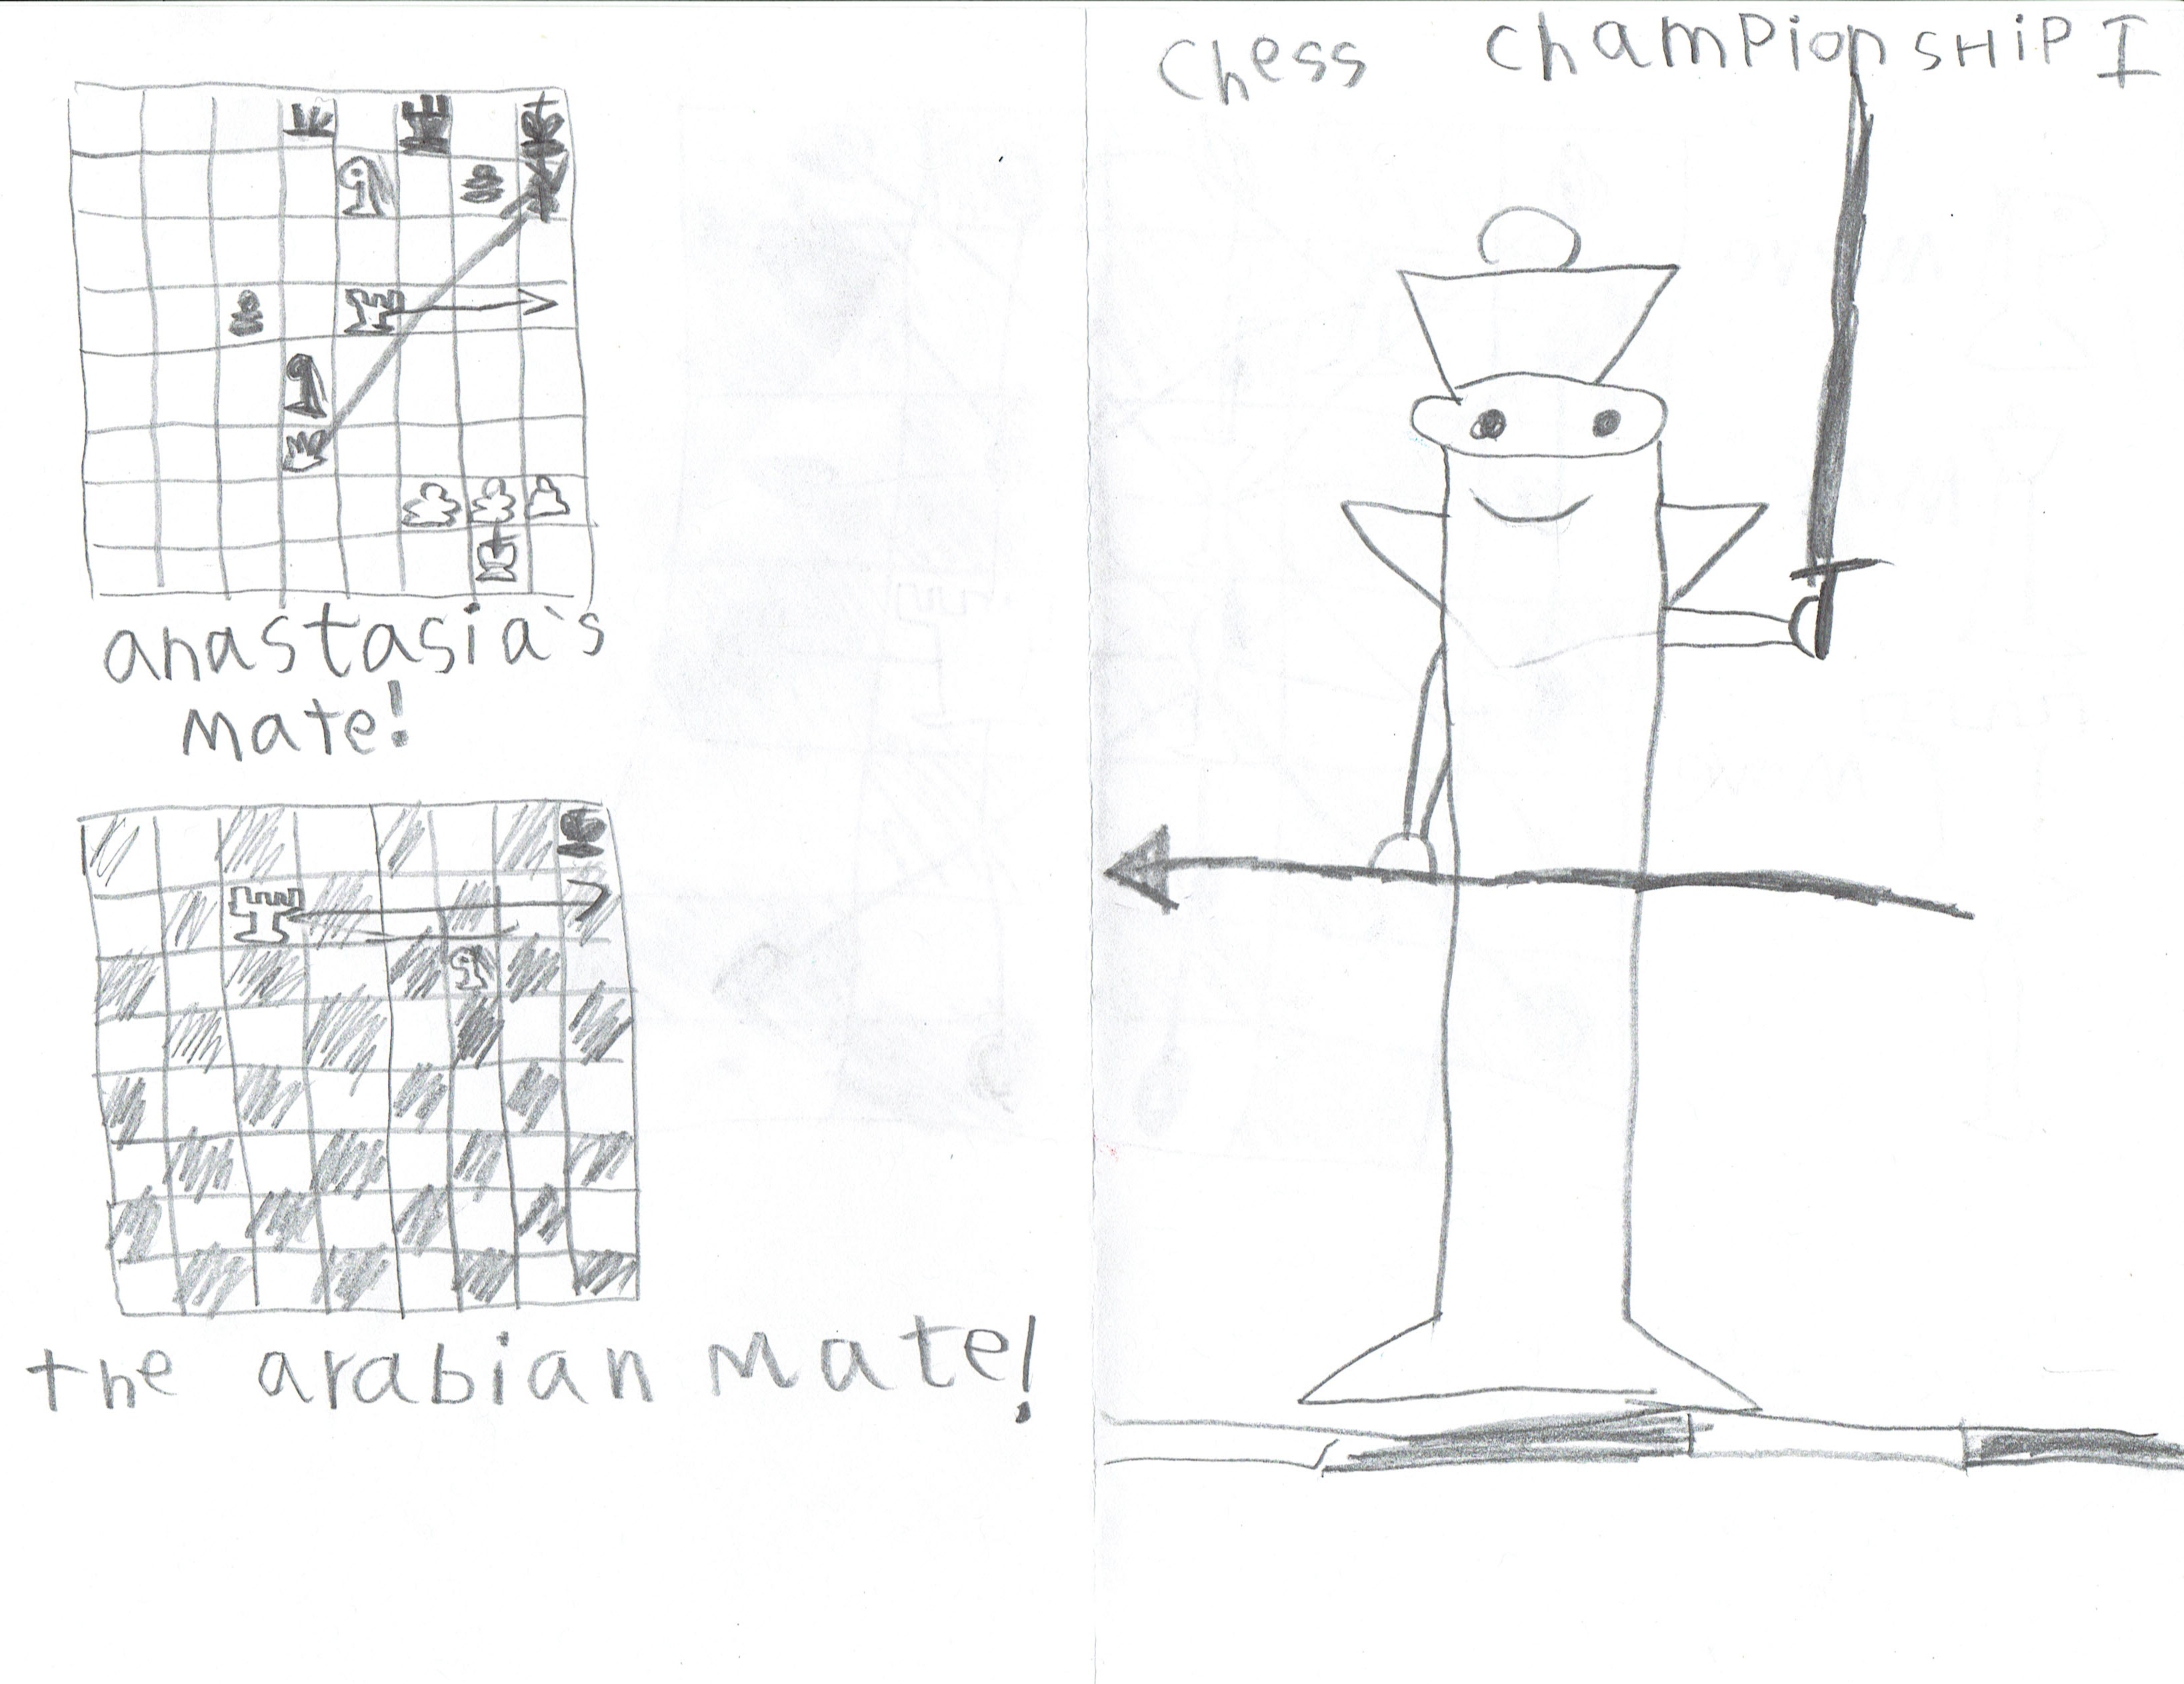 anastasia's
mate!
the arabian mate!
Chess Championship I